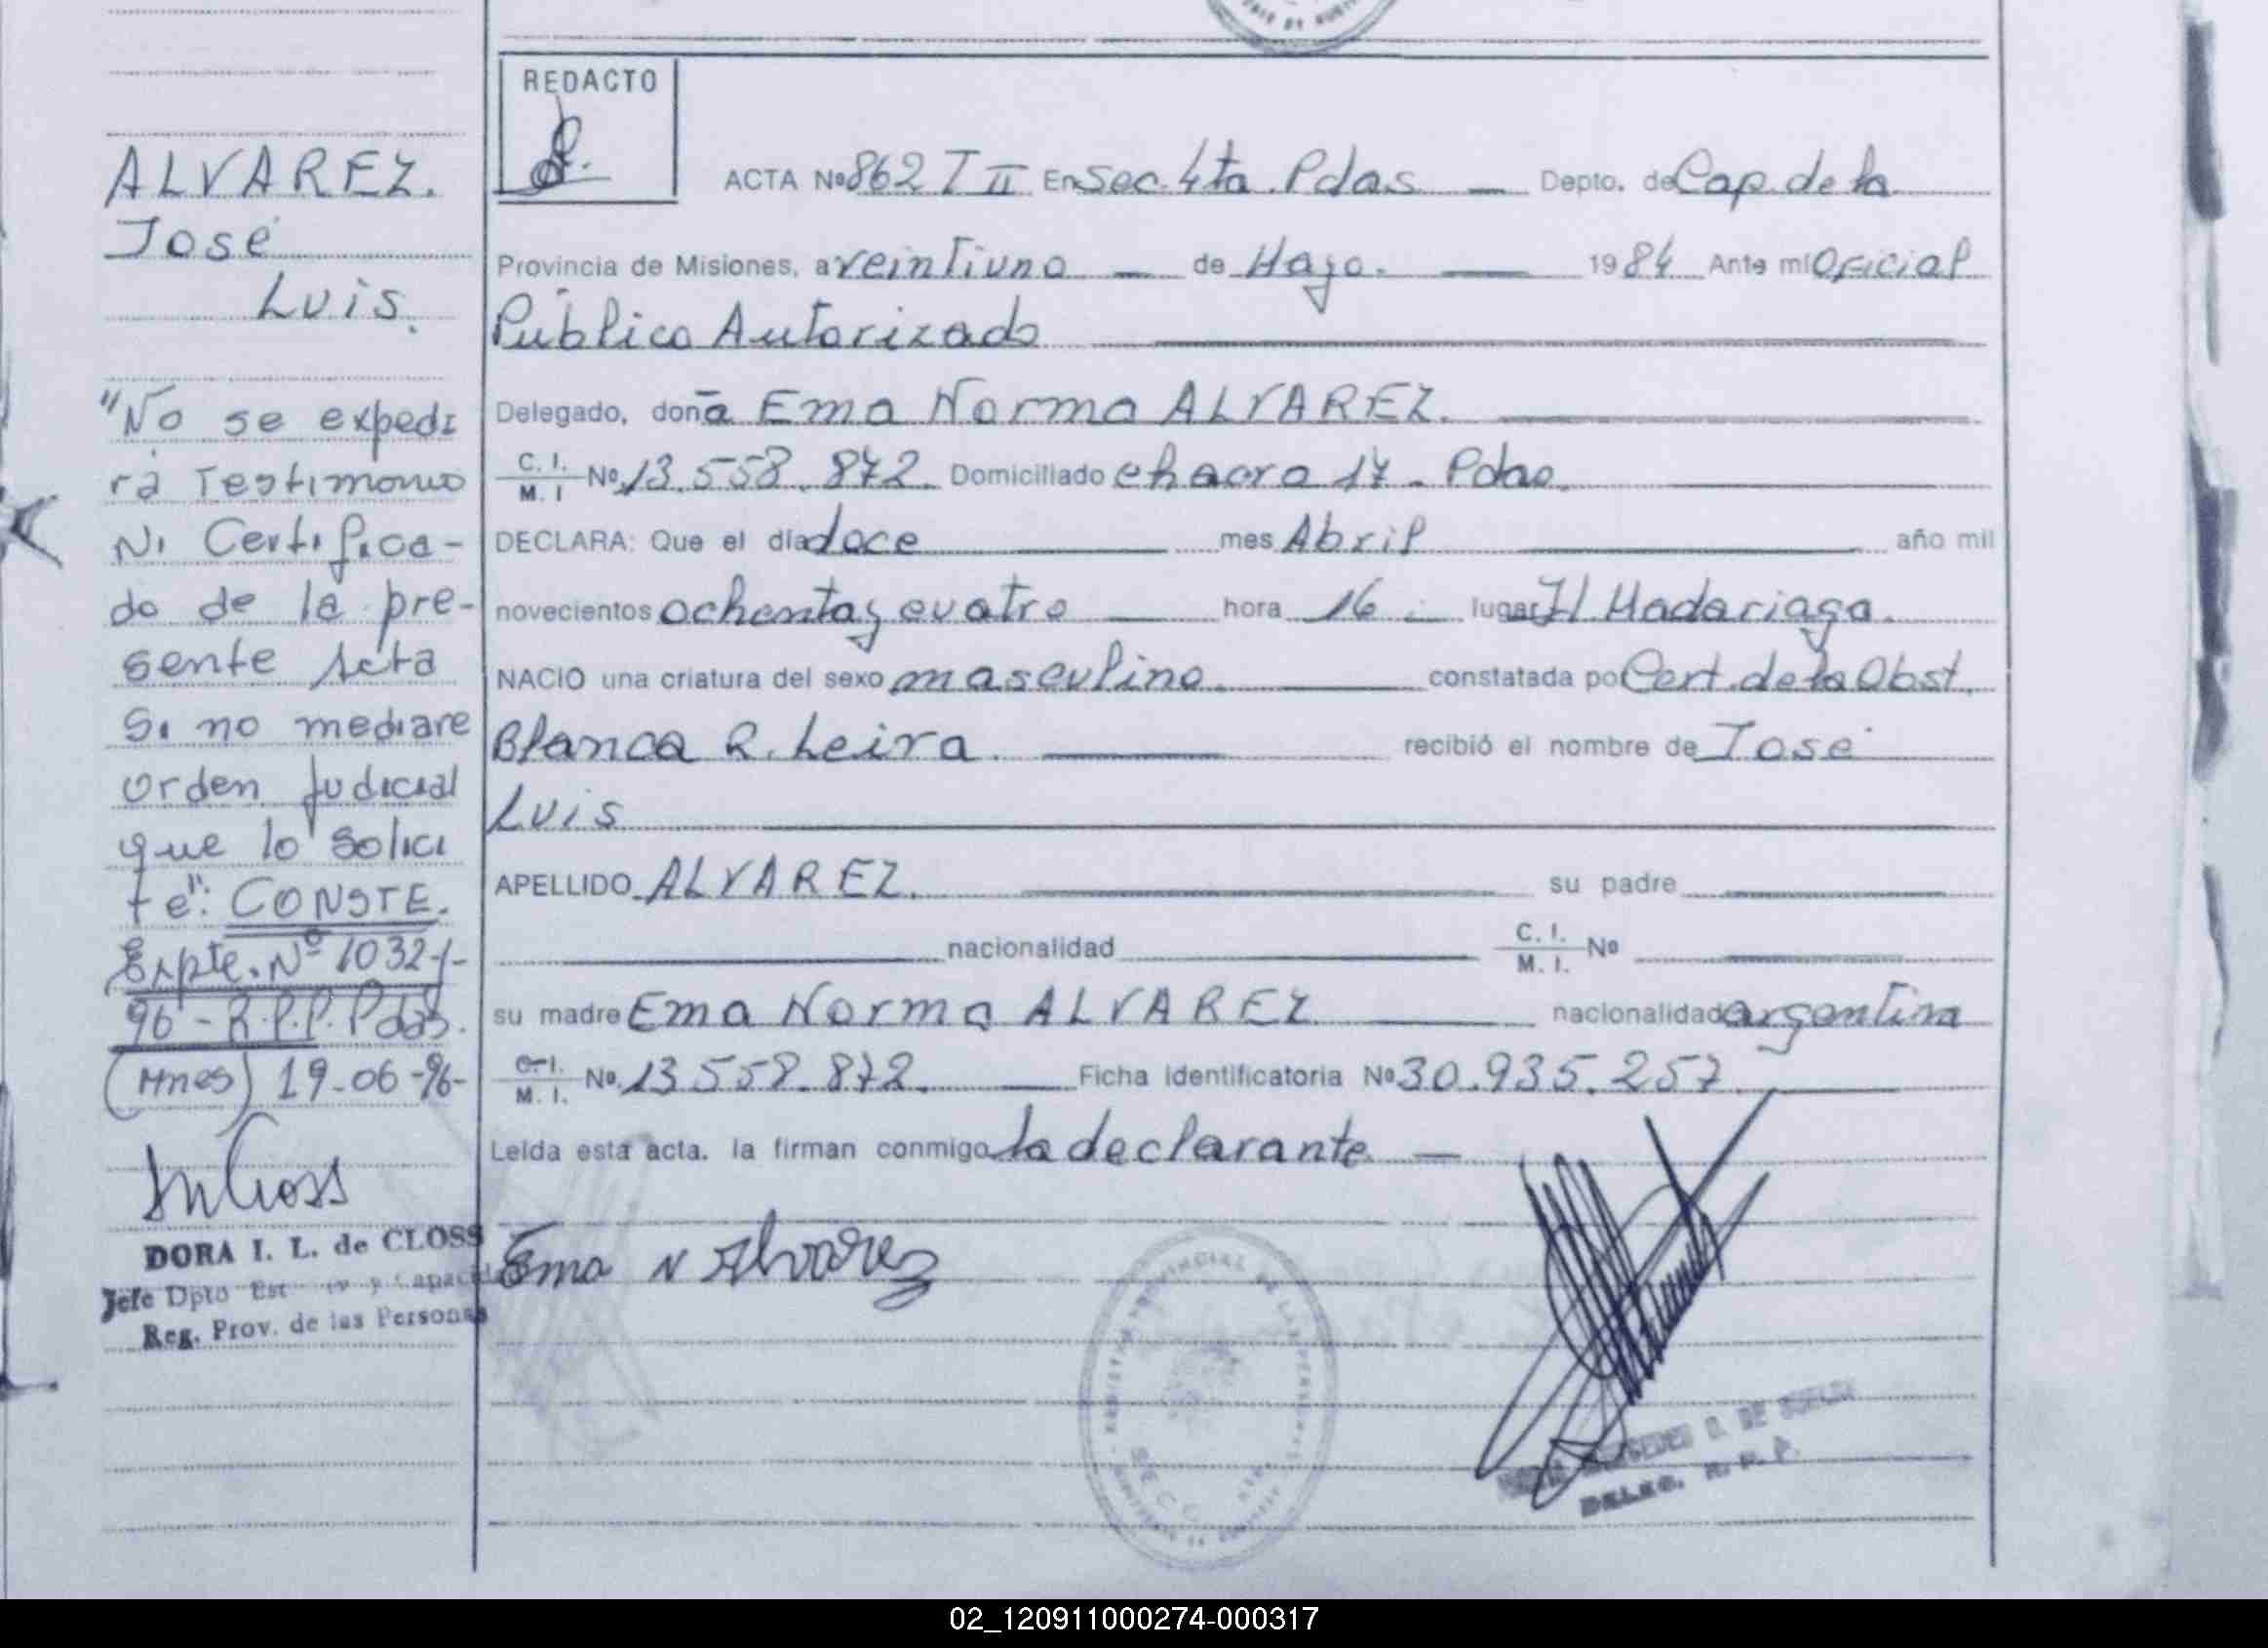 REDACTO
ALVAREZ.
José
Luis.
"No se expedi
rá Testimonio
Ni Certifica-
do de la pre-
sente Acta
Si no mediare
orden judicial
que lo solici
te": CONSTE.
Expte. Nº 1032-/-
96 - R.P.P. Pdas.
(Mnes) 19-06-96-
DORA I. L. de CLOSS
Jefe Dpto
Reg. Prov. de las Personas
ACTA Nº 862 T II En Sec. 4ta. Pdas Depto. de Cap. de la
Provincia de Misiones, a veintiuno de Mayo. 1984 Ante mí Oficial
Público Autorizado
Delegado, doña Ema Norma ALVAREZ.
C. I. M. I Nº 13.558.872. Domiciliado chacra 17 - Pdas.
DECLARA: Que el día doce mes Abril año mil
novecientos ochenta y cuatro hora 16 lugar H. Madariaga.
NACIO una criatura del sexo masculino. constatada po Cert. de la Obst.
Blanca R. Leira. recibió el nombre de José
Luis
APELLIDO ALVAREZ. su padre
nacionalidad C. I. M. I. Nº
su madre Ema Norma ALVAREZ nacionalidad argentina
C. I. M. I. Nº 13.558.872. Ficha identificatoria Nº 30.935.257.
Leída esta acta. la firman conmigo la declarante.
Ema N Alvarez
DELEG. R. P. P.
02_120911000274-000317